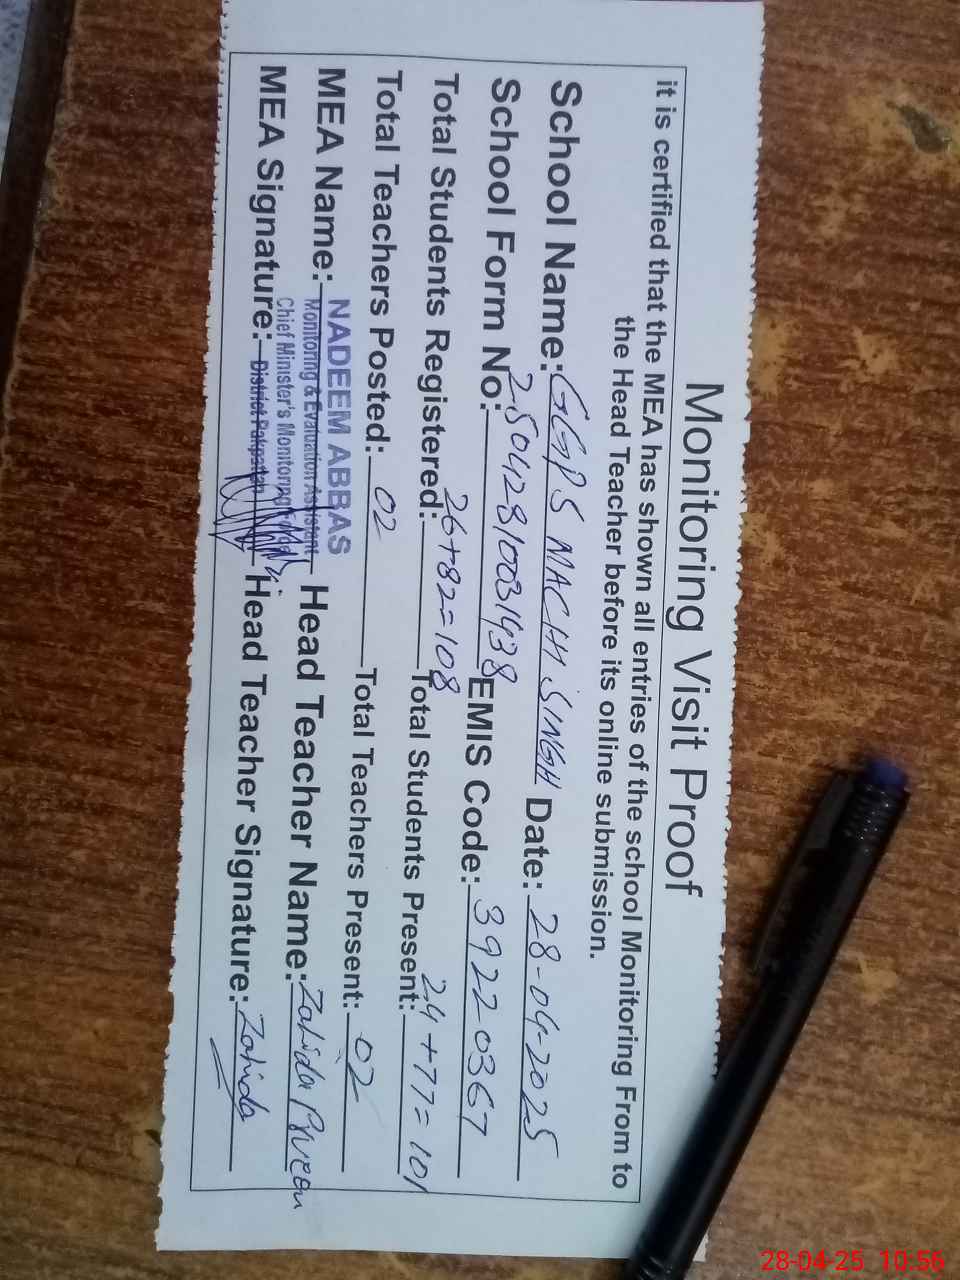 Monitoring Visit Proof
it is certified that the MEA has shown all entries of the school Monitoring From to
the Head Teacher before its online submission.
School Name: GGPS MACHHI SINGH Date: 28-04-2025
School Form No: 25042810031438 EMIS Code: 39220367
Total Students Registered: 26+82=108 Total Students Present: 24+77=101
Total Teachers Posted: 02 Total Teachers Present: 02
MEA Name: NADEEM ABBAS Head Teacher Name: Zahida Perveen
Monitoring & Evaluation Assistant
Chief Minister's Monitoring
District Pakpattan
MEA Signature: Head Teacher Signature: Zahida
28-04-25 10:56